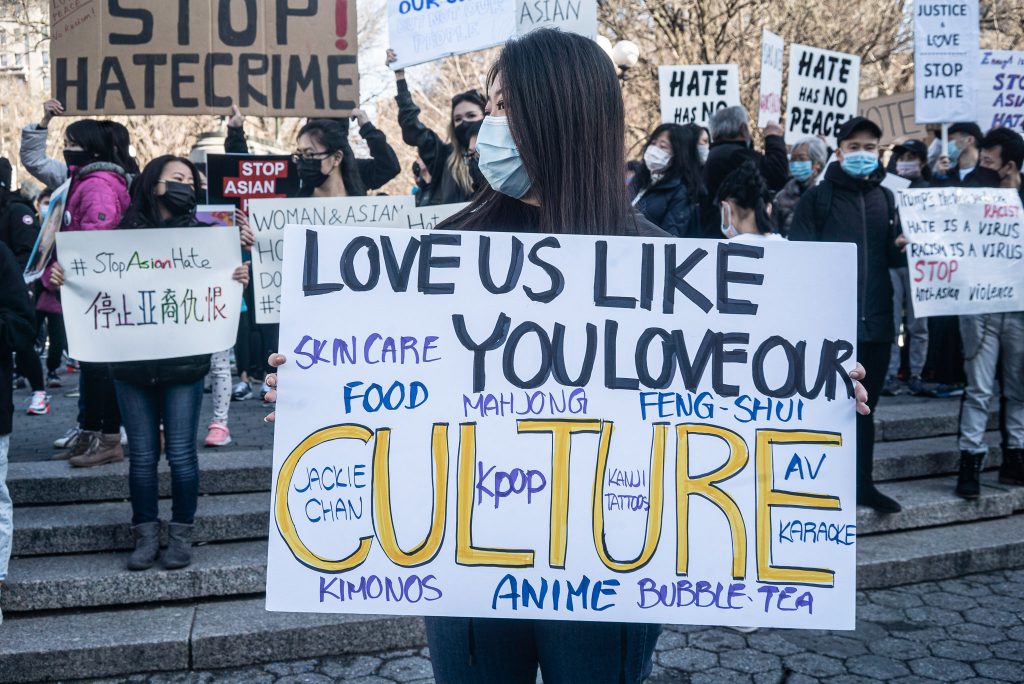 STOP!
HATECRIME
OUR
ASIAN
HATE
HAS NO
HATE
HAS NO
PEACE
JUSTICE
& LOVE
STOP
HATE
STOP
ASIAN
STOP
ASIAN
WOMAN & ASIAN
# STOPAsianHate
停止亚裔仇恨
RACIST
HATE IS A VIRUS
RACISM IS A VIRUS
STOP
Anti-Asian Violence
LOVE US LIKE
YOU LOVE OUR
SKIN CARE
FOOD
MAHJONG
FENG-SHUI
CULTURE
JACKIE
CHAN
Kpop
KANJI
TATTOOS
AV
KARAOKE
KIMONOS
ANIME
BUBBLE-TEA